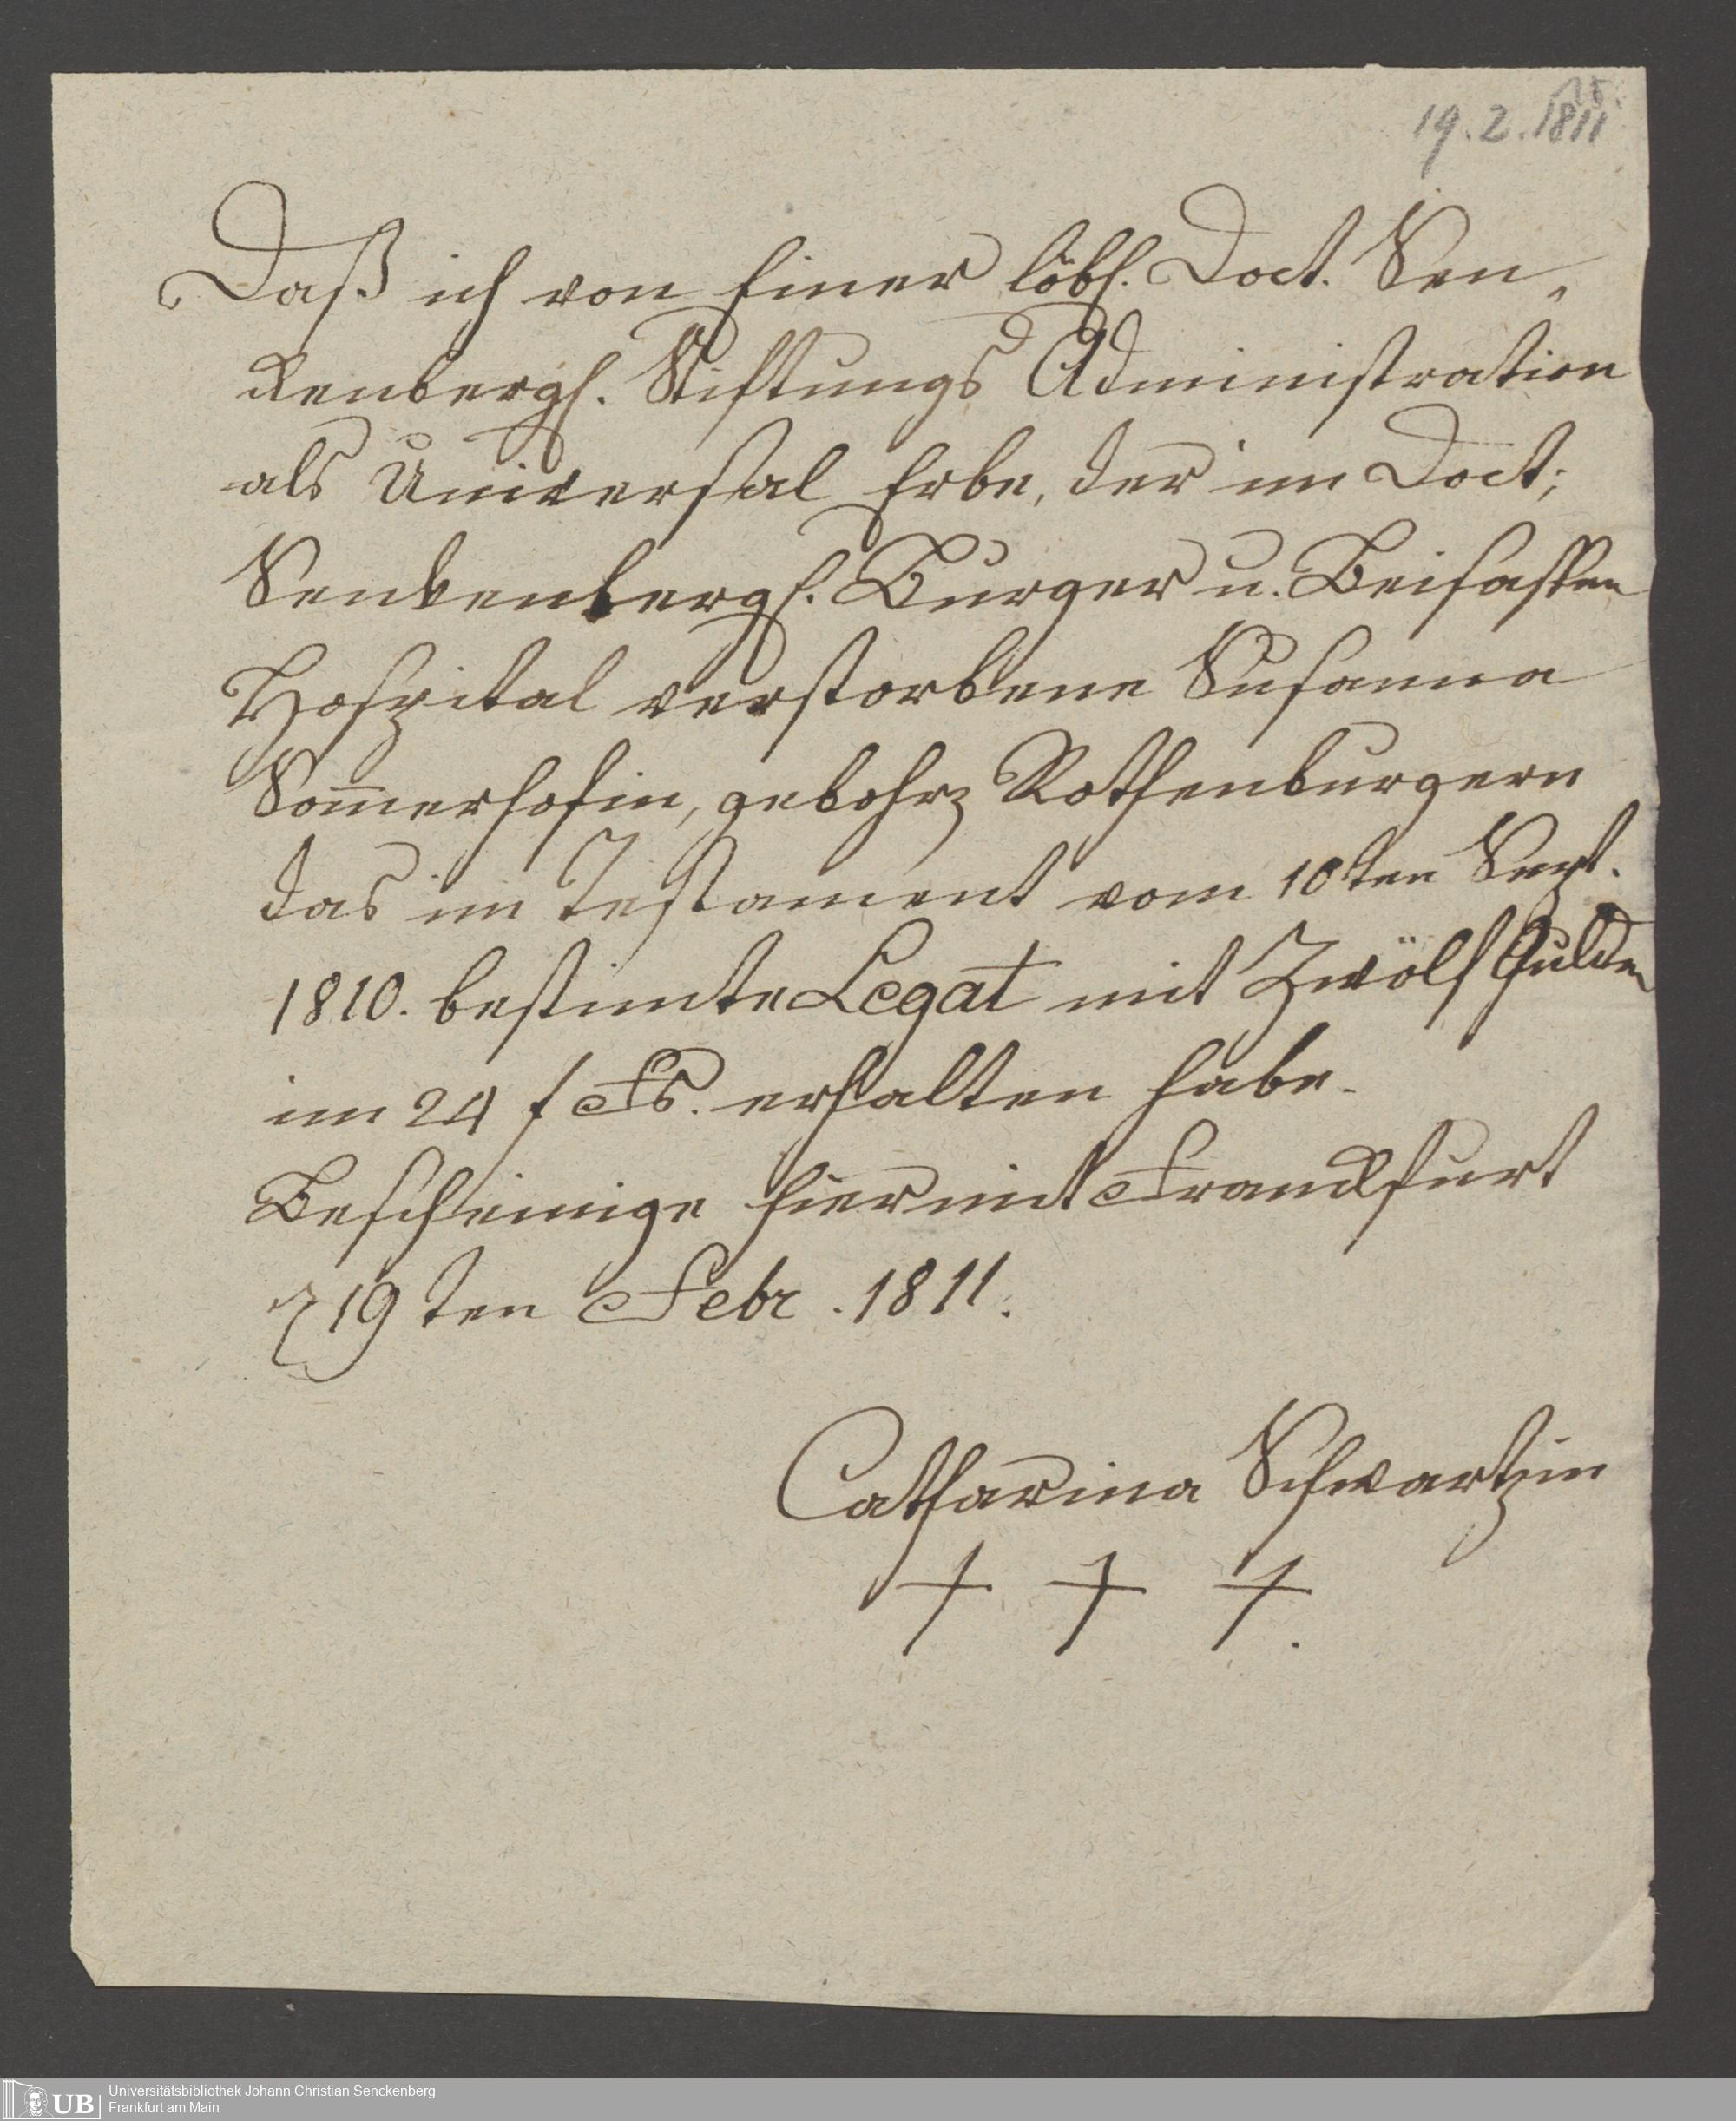 19.2.1811
Daß ich von Einer löbl. Doct. Sen,
kenbergl. Stiftungs Administration
als Universal Erbe, der im Doct;
Senkenbergl. Burger u. Beisassen
Hospital verstorbene Susanna
Som̅erhofin, gebohrn Rothenburgern
das im Testament vom 10ten Sept.
1810. bestim̅te Legat mit Zwölf Gulden
im 24 f Fs. erhalten habe.
Bescheinige hiermit Franckfurt
d 19ten Febr. 1811.
Catharina Schwartzin
+ + +.
UB
Universitätsbibliothek Johann Christian Senckenberg
Frankfurt am Main